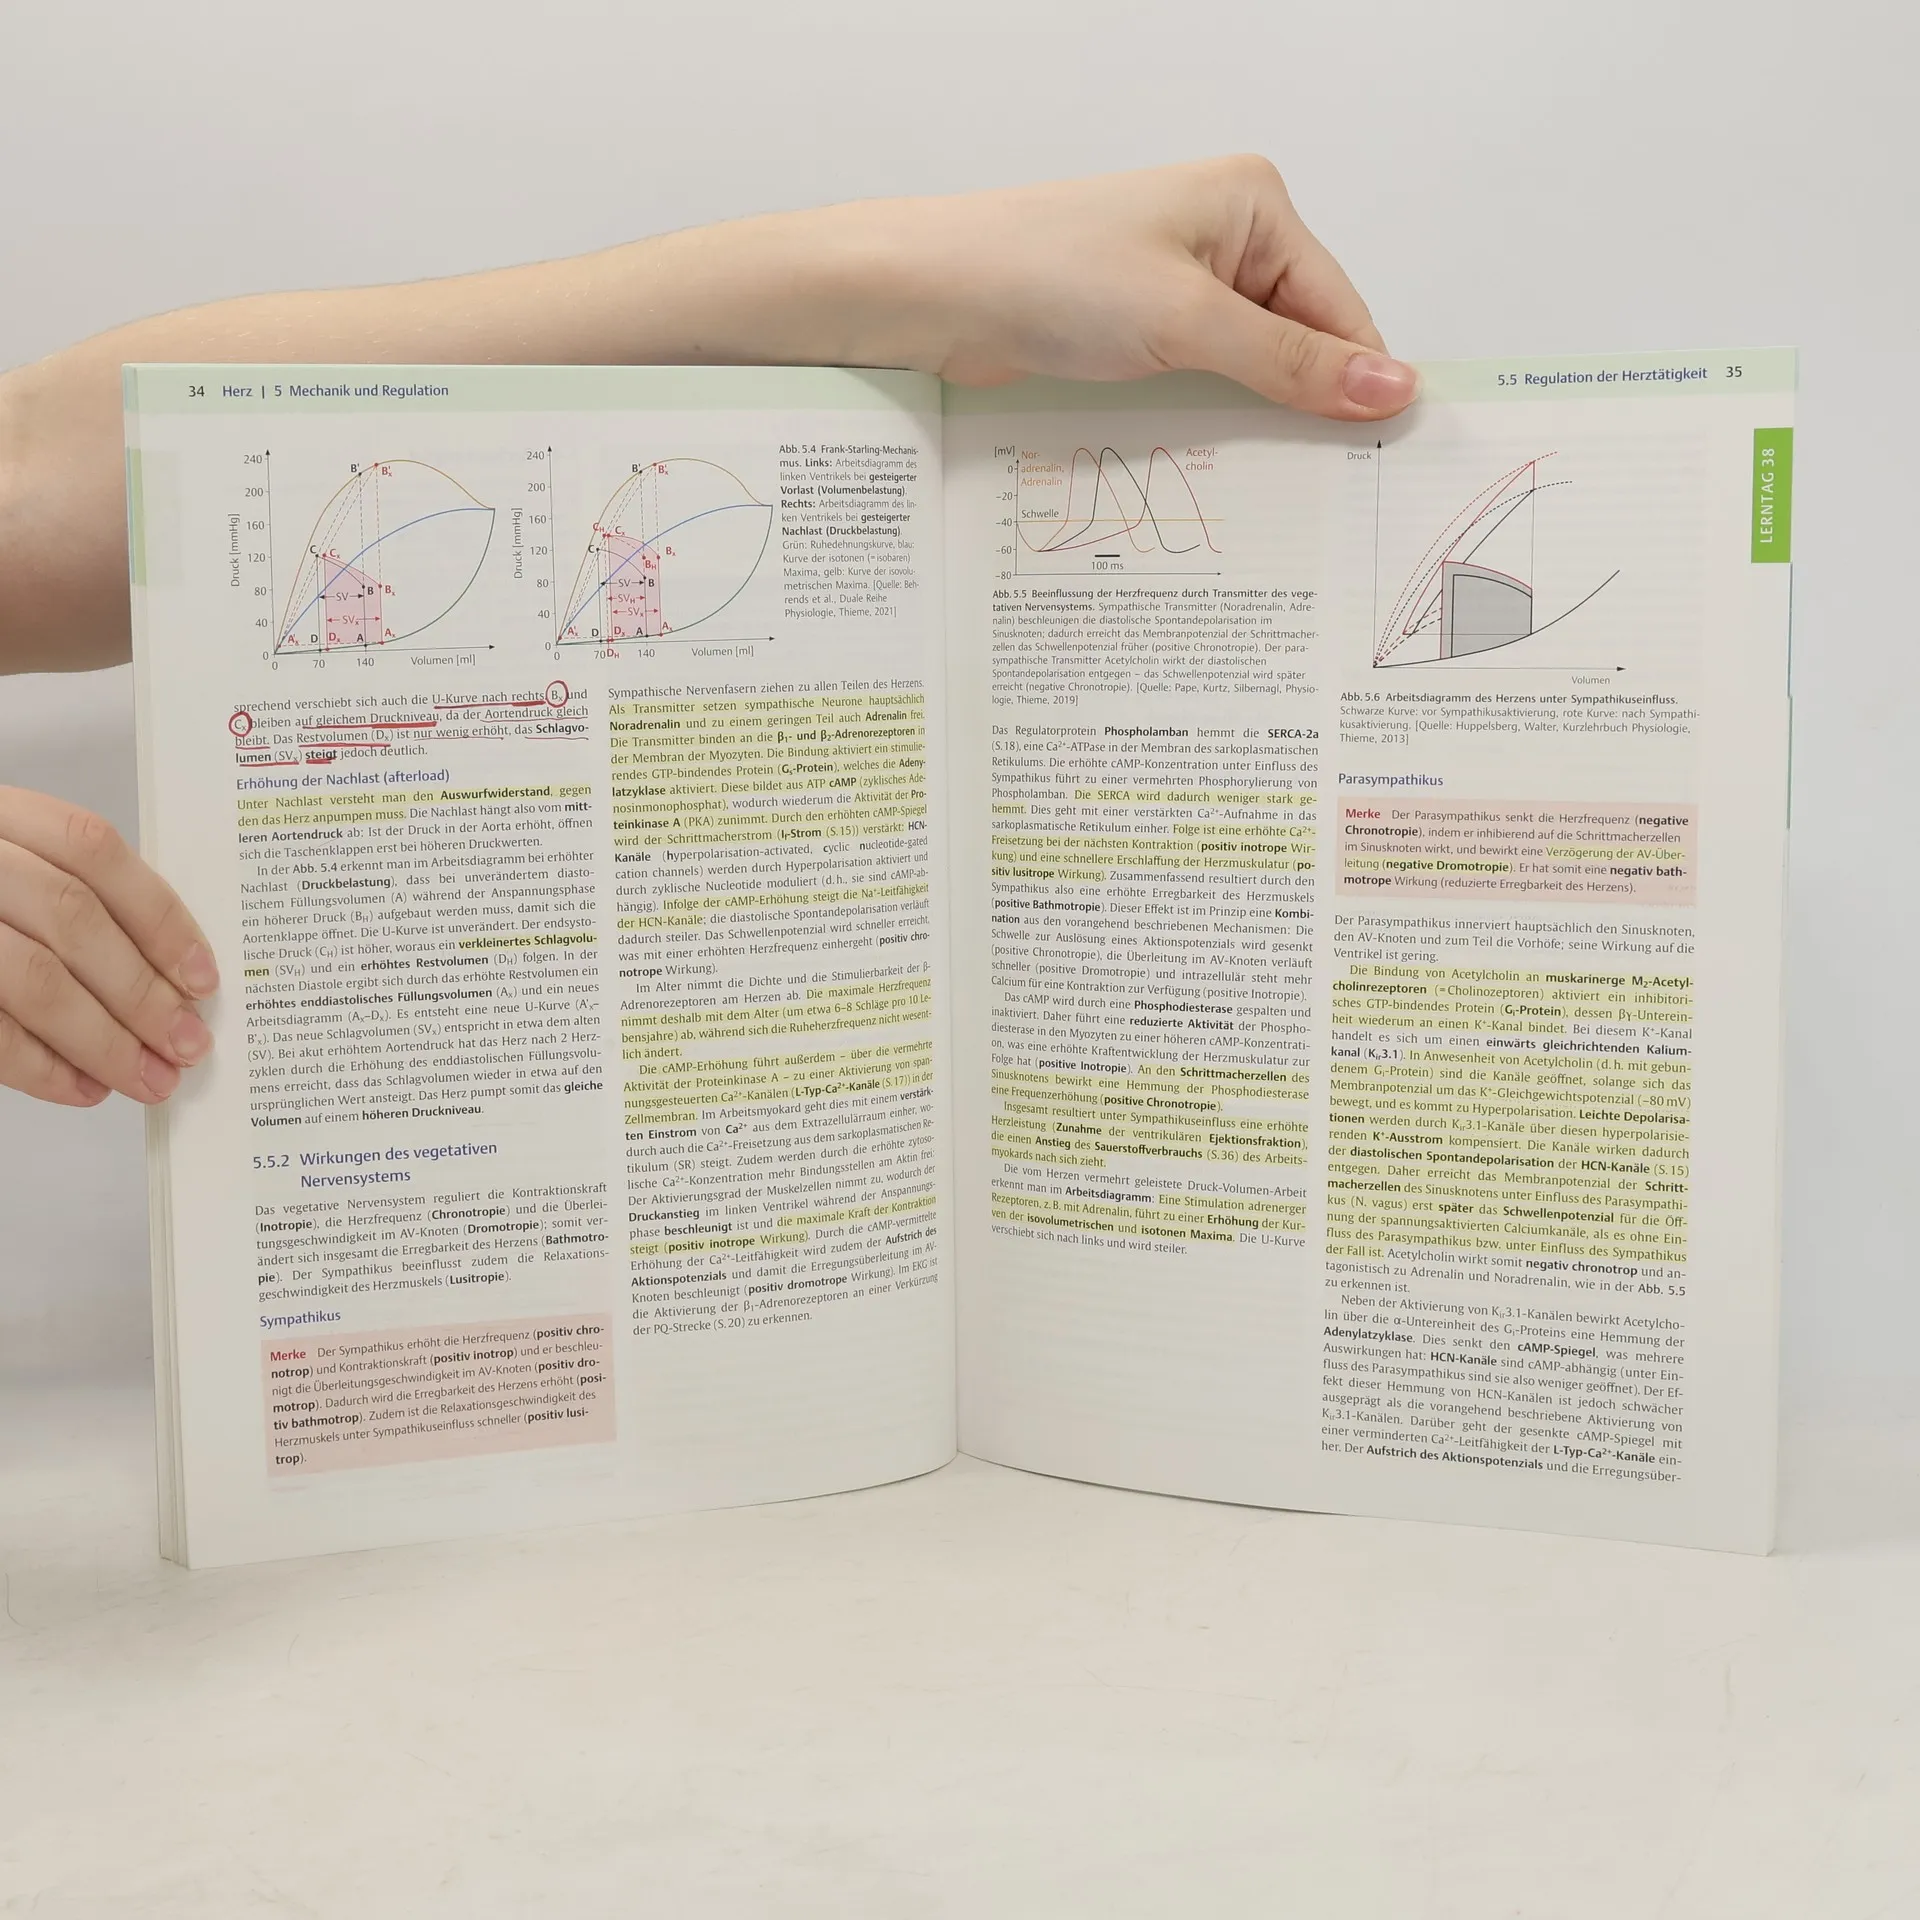 34 Herz | 5 Mechanik und Regulation
240
200
160
120
80
40
0
Druck [mmHg]
B'
B'x
C
Cx
SV
B
Bx
SVx
A'x
D
Dx
A
Ax
0
70
140
Volumen [ml]
240
200
160
120
80
40
0
Druck [mmHg]
B'
B'x
CH
Cx
C
Bx
BH
SV
B
SVH
SVx
A'x
D
Dx
A
Ax
0
70
DH
140
Volumen [ml]
Abb. 5.4 Frank-Starling-Mechanis-
mus. Links: Arbeitsdiagramm des
linken Ventrikels bei gesteigerter
Vorlast (Volumenbelastung).
Rechts: Arbeitsdiagramm des lin-
ken Ventrikels bei gesteigerter
Nachlast (Druckbelastung).
Grün: Ruhedehnungskurve, blau:
Kurve der isotonen (= isobaren)
Maxima, gelb: Kurve der isovolu-
metrischen Maxima. [Quelle: Beh-
rends et al., Duale Reihe
Physiologie, Thieme, 2021]
sprechend verschiebt sich auch die U-Kurve nach rechts. Bx und
Cx bleiben auf gleichem Druckniveau, da der Aortendruck gleich
bleibt. Das Restvolumen (Dx) ist nur wenig erhöht, das Schlagvo-
lumen (SVx) steigt jedoch deutlich.
Erhöhung der Nachlast (afterload)
Unter Nachlast versteht man den Auswurfwiderstand, gegen
den das Herz anpumpen muss. Die Nachlast hängt also vom mitt-
leren Aortendruck ab: Ist der Druck in der Aorta erhöht, öffnen
sich die Taschenklappen erst bei höheren Druckwerten.
In der Abb. 5.4 erkennt man im Arbeitsdiagramm bei erhöhter
Nachlast (Druckbelastung), dass bei unverändertem diasto-
lischem Füllungsvolumen (A) während der Anspannungsphase
ein höherer Druck (BH) aufgebaut werden muss, damit sich die
Aortenklappe öffnet. Die U-Kurve ist unverändert. Der endsysto-
lische Druck (CH) ist höher, woraus ein verkleinertes Schlagvolu-
men (SVH) und ein erhöhtes Restvolumen (DH) folgen. In der
nächsten Diastole ergibt sich durch das erhöhte Restvolumen ein
erhöhtes enddiastolisches Füllungsvolumen (Ax) und ein neues
Arbeitsdiagramm (Ax–Dx). Es entsteht eine neue U-Kurve (A'x–
B'x). Das neue Schlagvolumen (SVx) entspricht in etwa dem alten
(SV). Bei akut erhöhtem Aortendruck hat das Herz nach 2 Herz-
zyklen durch die Erhöhung des enddiastolischen Füllungsvolu-
mens erreicht, dass das Schlagvolumen wieder in etwa auf den
ursprünglichen Wert ansteigt. Das Herz pumpt somit das gleiche
Volumen auf einem höheren Druckniveau.
5.5.2 Wirkungen des vegetativen
Nervensystems
Das vegetative Nervensystem reguliert die Kontraktionskraft
(Inotropie), die Herzfrequenz (Chronotropie) und die Überlei-
tungsgeschwindigkeit im AV-Knoten (Dromotropie); somit ver-
ändert sich insgesamt die Erregbarkeit des Herzens (Bathmotro-
pie). Der Sympathikus beeinflusst zudem die Relaxations-
geschwindigkeit des Herzmuskels (Lusitropie).
Sympathikus
Merke Der Sympathikus erhöht die Herzfrequenz (positiv chro-
notrop) und Kontraktionskraft (positiv inotrop) und er beschleu-
nigt die Überleitungsgeschwindigkeit im AV-Knoten (positiv dro-
motrop). Dadurch wird die Erregbarkeit des Herzens erhöht (posi-
tiv bathmotrop). Zudem ist die Relaxationsgeschwindigkeit des
Herzmuskels unter Sympathikuseinfluss schneller (positiv lusi-
trop).
Sympathische Nervenfasern ziehen zu allen Teilen des Herzens.
Als Transmitter setzen sympathische Neurone hauptsächlich
Noradrenalin und zu einem geringen Teil auch Adrenalin frei.
Die Transmitter binden an die β1- und β2-Adrenorezeptoren in
der Membran der Myozyten. Die Bindung aktiviert ein stimulie-
rendes GTP-bindendes Protein (Gs-Protein), welches die Adeny-
latzyklase aktiviert. Diese bildet aus ATP cAMP (zyklisches Ade-
nosinmonophosphat), wodurch wiederum die Aktivität der Pro-
teinkinase A (PKA) zunimmt. Durch den erhöhten cAMP-Spiegel
wird der Schrittmacherstrom (If-Strom (S. 15)) verstärkt: HCN-
Kanäle (hyperpolarisation-activated, cyclic nucleotide-gated
cation channels) werden durch Hyperpolarisation aktiviert und
durch zyklische Nucleotide moduliert (d. h., sie sind cAMP-ab-
hängig). Infolge der cAMP-Erhöhung steigt die Na⁺-Leitfähigkeit
der HCN-Kanäle; die diastolische Spontandepolarisation verläuft
dadurch steiler. Das Schwellenpotenzial wird schneller erreicht,
was mit einer erhöhten Herzfrequenz einhergeht (positiv chro-
notrope Wirkung).
Im Alter nimmt die Dichte und die Stimulierbarkeit der β-
Adrenorezeptoren am Herzen ab. Die maximale Herzfrequenz
nimmt deshalb mit dem Alter (um etwa 6–8 Schläge pro 10 Le-
bensjahre) ab, während sich die Ruheherzfrequenz nicht wesent-
lich ändert.
Die cAMP-Erhöhung führt außerdem – über die vermehrte
Aktivität der Proteinkinase A – zu einer Aktivierung von span-
nungsgesteuerten Ca²⁺-Kanälen (L-Typ-Ca²⁺-Kanäle (S. 17)) in der
Zellmembran. Im Arbeitsmyokard geht dies mit einem verstärk-
ten Einstrom von Ca²⁺ aus dem Extrazellulärraum einher, wo-
durch auch die Ca²⁺-Freisetzung aus dem sarkoplasmatischen Re-
tikulum (SR) steigt. Zudem werden durch die erhöhte zytoso-
lische Ca²⁺-Konzentration mehr Bindungsstellen am Aktin frei:
Der Aktivierungsgrad der Muskelzellen nimmt zu, wodurch der
Druckanstieg im linken Ventrikel während der Anspannungs-
phase beschleunigt ist und die maximale Kraft der Kontraktion
steigt (positiv inotrope Wirkung). Durch die cAMP-vermittelte
Erhöhung der Ca²⁺-Leitfähigkeit wird zudem der Aufstrich des
Aktionspotenzials und damit die Erregungsüberleitung im AV-
Knoten beschleunigt (positiv dromotrope Wirkung). Im EKG ist
die Aktivierung der β1-Adrenorezeptoren an einer Verkürzung
der PQ-Strecke (S. 20) zu erkennen.
5.5 Regulation der Herztätigkeit 35
LERNTAG 38
[mV]
0
-20
-40
-60
-80
Nor-
adrenalin,
Adrenalin
Acetyl-
cholin
Schwelle
100 ms
Abb. 5.5 Beeinflussung der Herzfrequenz durch Transmitter des vege-
tativen Nervensystems. Sympathische Transmitter (Noradrenalin, Adre-
nalin) beschleunigen die diastolische Spontandepolarisation im
Sinusknoten; dadurch erreicht das Membranpotenzial der Schrittmacher-
zellen das Schwellenpotenzial früher (positive Chronotropie). Der para-
sympathische Transmitter Acetylcholin wirkt der diastolischen
Spontandepolarisation entgegen – das Schwellenpotenzial wird später
erreicht (negative Chronotropie). [Quelle: Pape, Kurtz, Silbernagl, Physio-
logie, Thieme, 2019]
Das Regulatorprotein Phospholamban hemmt die SERCA-2a
(S. 18), eine Ca²⁺-ATPase in der Membran des sarkoplasmatischen
Retikulums. Die erhöhte cAMP-Konzentration unter Einfluss des
Sympathikus führt zu einer vermehrten Phosphorylierung von
Phospholamban. Die SERCA wird dadurch weniger stark ge-
hemmt. Dies geht mit einer verstärkten Ca²⁺-Aufnahme in das
sarkoplasmatische Retikulum einher. Folge ist eine erhöhte Ca²⁺-
Freisetzung bei der nächsten Kontraktion (positiv inotrope Wir-
kung) und eine schnellere Erschlaffung der Herzmuskulatur (po-
sitiv lusitrope Wirkung). Zusammenfassend resultiert durch den
Sympathikus also eine erhöhte Erregbarkeit des Herzmuskels
(positive Bathmotropie). Dieser Effekt ist im Prinzip eine Kombi-
nation aus den vorangehend beschriebenen Mechanismen: Die
Schwelle zur Auslösung eines Aktionspotenzials wird gesenkt
(positive Chronotropie), die Überleitung im AV-Knoten verläuft
schneller (positive Dromotropie) und intrazellulär steht mehr
Calcium für eine Kontraktion zur Verfügung (positive Inotropie).
Das cAMP wird durch eine Phosphodiesterase gespalten und
inaktiviert. Daher führt eine reduzierte Aktivität der Phospho-
diesterase in den Myozyten zu einer höheren cAMP-Konzentrati-
on, was eine erhöhte Kraftentwicklung der Herzmuskulatur zur
Folge hat (positive Inotropie). An den Schrittmacherzellen des
Sinusknotens bewirkt eine Hemmung der Phosphodiesterase
eine Frequenzerhöhung (positive Chronotropie).
Insgesamt resultiert unter Sympathikuseinfluss eine erhöhte
Herzleistung (Zunahme der ventrikulären Ejektionsfraktion),
die einen Anstieg des Sauerstoffverbrauchs (S. 36) des Arbeits-
myokards nach sich zieht.
Die vom Herzen vermehrt geleistete Druck-Volumen-Arbeit
erkennt man im Arbeitsdiagramm: Eine Stimulation adrenerger
Rezeptoren, z. B. mit Adrenalin, führt zu einer Erhöhung der Kur-
ven der isovolumetrischen und isotonen Maxima. Die U-Kurve
verschiebt sich nach links und wird steiler.
Druck
Volumen
Abb. 5.6 Arbeitsdiagramm des Herzens unter Sympathikuseinfluss.
Schwarze Kurve: vor Sympathikusaktivierung, rote Kurve: nach Sympathi-
kusaktivierung. [Quelle: Huppelsberg, Walter, Kurzlehrbuch Physiologie,
Thieme, 2013]
Parasympathikus
Merke Der Parasympathikus senkt die Herzfrequenz (negative
Chronotropie), indem er inhibierend auf die Schrittmacherzellen
im Sinusknoten wirkt, und bewirkt eine Verzögerung der AV-Über-
leitung (negative Dromotropie). Er hat somit eine negativ bath-
motrope Wirkung (reduzierte Erregbarkeit des Herzens).
Der Parasympathikus innerviert hauptsächlich den Sinusknoten,
den AV-Knoten und zum Teil die Vorhöfe; seine Wirkung auf die
Ventrikel ist gering.
Die Bindung von Acetylcholin an muskarinerge M2-Acetyl-
cholinrezeptoren (= Cholinozeptoren) aktiviert ein inhibitori-
sches GTP-bindendes Protein (Gi-Protein), dessen βγ-Unterein-
heit wiederum an einen K⁺-Kanal bindet. Bei diesem K⁺-Kanal
handelt es sich um einen einwärts gleichrichtenden Kalium-
kanal (Kir3.1). In Anwesenheit von Acetylcholin (d. h. mit gebun-
denem Gi-Protein) sind die Kanäle geöffnet, solange sich das
Membranpotenzial um das K⁺-Gleichgewichtspotenzial (−80 mV)
bewegt, und es kommt zu Hyperpolarisation. Leichte Depolarisa-
tionen werden durch Kir3.1-Kanäle über diesen hyperpolarisie-
renden K⁺-Ausstrom kompensiert. Die Kanäle wirken dadurch
der diastolischen Spontandepolarisation der HCN-Kanäle (S. 15)
entgegen. Daher erreicht das Membranpotenzial der Schritt-
macherzellen des Sinusknotens unter Einfluss des Parasympathi-
kus (N. vagus) erst später das Schwellenpotenzial für die Öff-
nung der spannungsaktivierten Calciumkanäle, als es ohne Ein-
fluss des Parasympathikus bzw. unter Einfluss des Sympathikus
der Fall ist. Acetylcholin wirkt somit negativ chronotrop und an-
tagonistisch zu Adrenalin und Noradrenalin, wie in der Abb. 5.5
zu erkennen ist.
Neben der Aktivierung von Kir3.1-Kanälen bewirkt Acetylcho-
lin über die α-Untereinheit des Gi-Proteins eine Hemmung der
Adenylatzyklase. Dies senkt den cAMP-Spiegel, was mehrere
Auswirkungen hat: HCN-Kanäle sind cAMP-abhängig (unter Ein-
fluss des Parasympathikus sind sie also weniger geöffnet). Der Ef-
fekt dieser Hemmung von HCN-Kanälen ist jedoch schwächer
ausgeprägt als die vorangehend beschriebene Aktivierung von
Kir3.1-Kanälen. Darüber geht der gesenkte cAMP-Spiegel mit
einer verminderten Ca²⁺-Leitfähigkeit der L-Typ-Ca²⁺-Kanäle ein-
her. Der Aufstrich des Aktionspotenzials und die Erregungsüber-